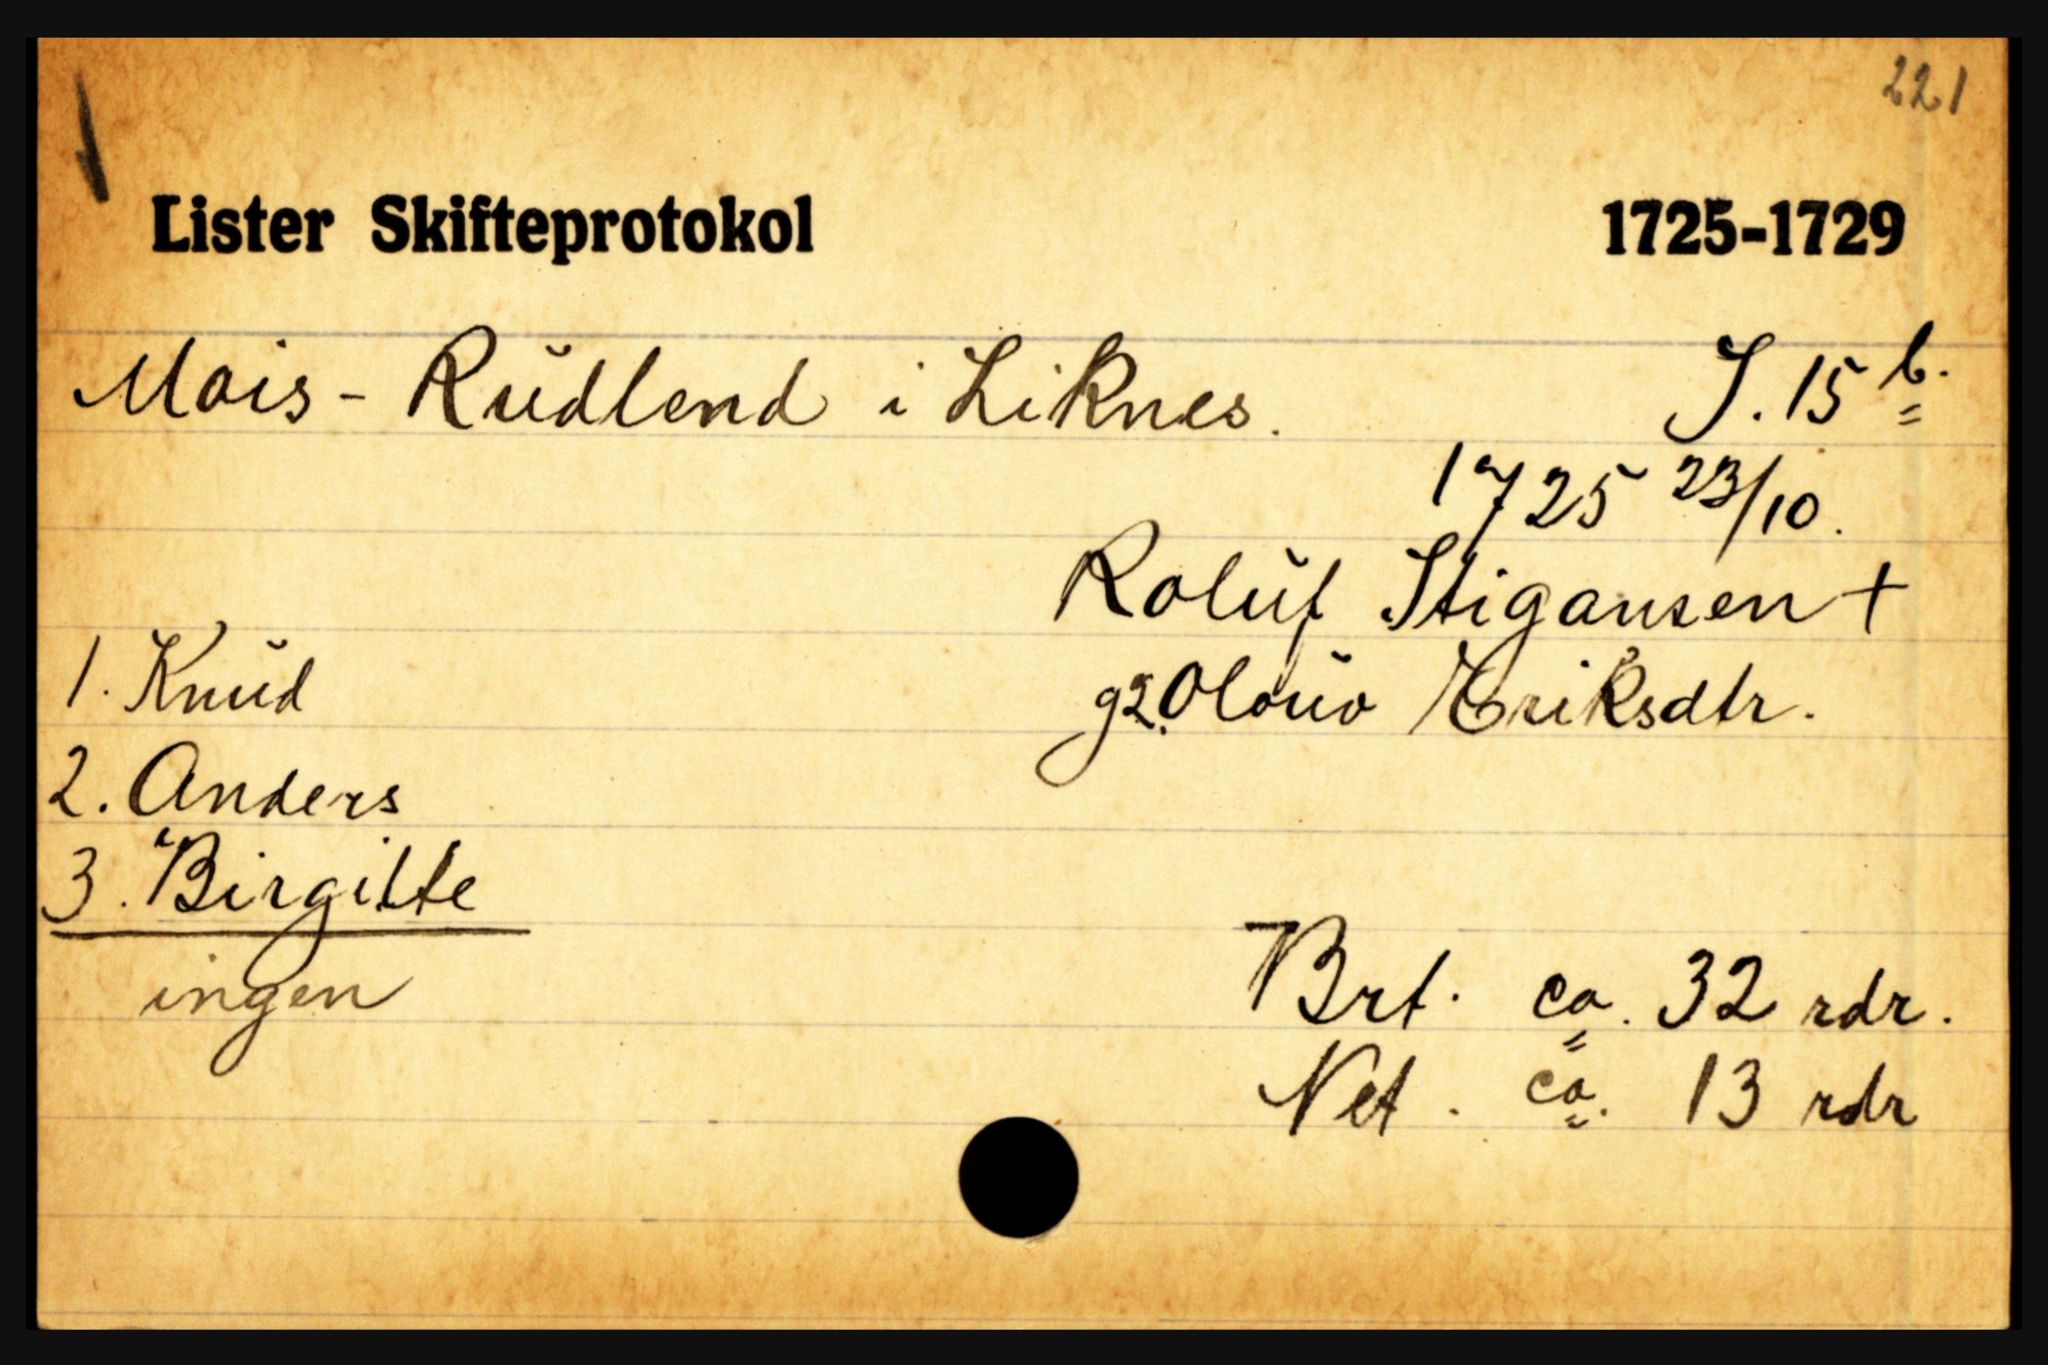 221
Lister Skifteprotokol 1725-1729
Mois - Rudlend i Liknes. S. 15 b.
1725 23/10.
Roluf Stigansen +
g2. Olouv Eriksdtr.
1. Knud
2. Anders
3. Birgitte
ingen
Brt. ca. 32 rdr.
Net. ca. 13 rdr